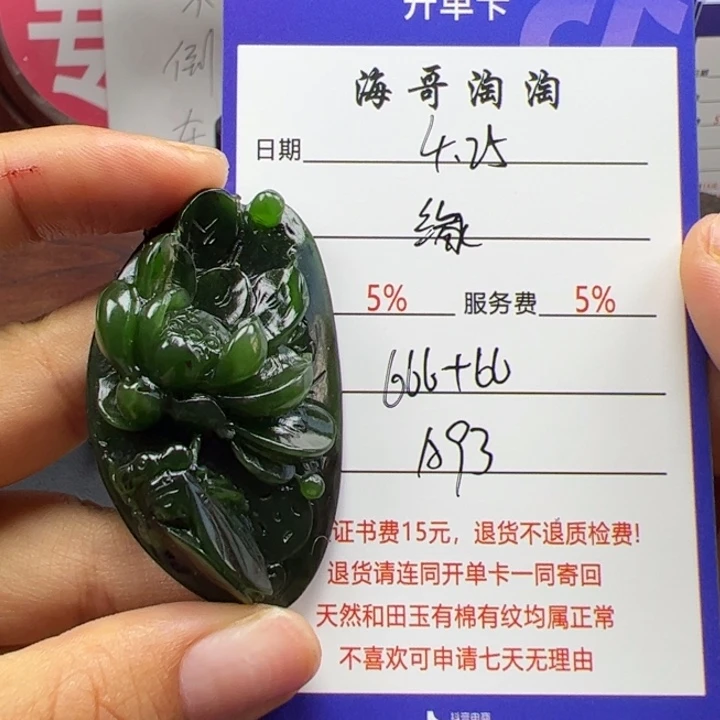 专
倒
在
开单卡
海哥淘淘
日期 4.25
缘
5% 服务费 5%
666+66
A93
证书费15元，退货不退质检费!
退货请连同开单卡一同寄回
天然和田玉有棉有纹均属正常
不喜欢可申请七天无理由
抖音电商